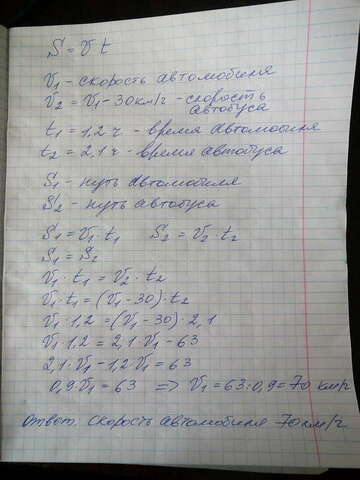 S = v t
v1 - скорость автомобиля
v2 = v1 - 30 км/г - скорость
автобуса
t1 = 1,2 ч - время автомобиля
t2 = 2,1 ч - время автобуса
S1 - путь автомобиля
S2 - путь автобуса
S1 = v1 · t1 S2 = v2 · t2
S1 = S2
v1 · t1 = v2 · t2
v1 · t1 = (v1 - 30) · t2
v1 · 1,2 = (v1 - 30) · 2,1
v1 · 1,2 = 2,1 v1 - 63
2,1 · v1 - 1,2 v1 = 63
0,9 v1 = 63 => v1 = 63 : 0,9 = 70 км/г
Ответ: скорость автомобиля 70 км/г